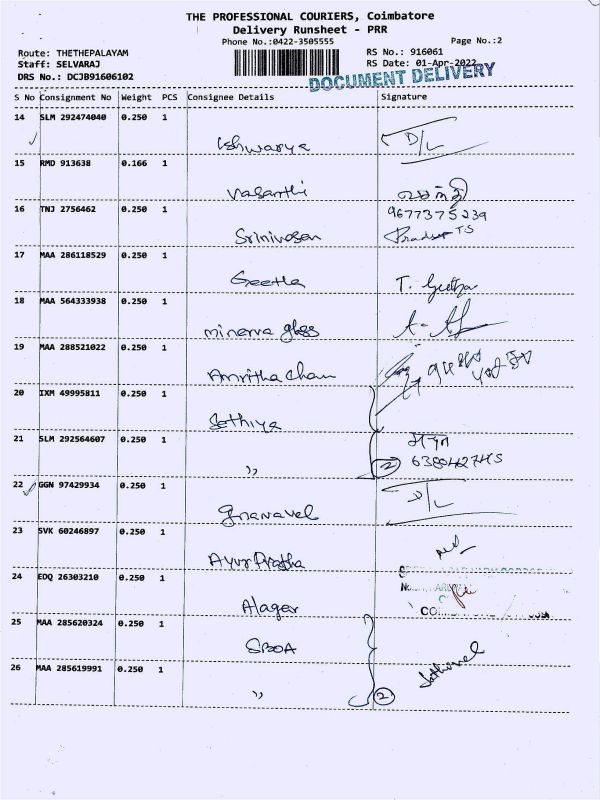 THE PROFESSIONAL COURIERS, Coimbatore
Delivery Runsheet - PRR
Phone No.:0422-3505555
Page No.:2
Route: THETHEPALAYAM
RS No.: 916061
Staff: SELVARAJ
RS Date: 01-Apr-2022
DRS No.: DCJB91606102
DOCUMENT DELIVERY
S No Consignment No Weight PCS Consignee Details Signature
14 SLM 292474040 0.250 1
Ishwarya D/L
15 RMD 913638 0.166 1
Vasanthi வசந்தி
16 TNJ 2756462 0.250 1
9677375239
Srinivasan
17 MAA 286118529 0.250 1
Geetha T. Geetha
18 MAA 564333938 0.250 1
minerva glass
19 MAA 288521022 0.250 1
Amritha Cham
20 IXM 49995811 0.250 1
Sathiya
21 SLM 292564607 0.250 1
" 2
22 GGN 97429934 0.250 1
Gnanavel D/L
23 SVK 60246897 0.250 1
Ayur Pratha
24 EDQ 26303210 0.250 1
Alager
25 MAA 285620324 0.250 1
SBOA
26 MAA 285619991 0.250 1
" 2